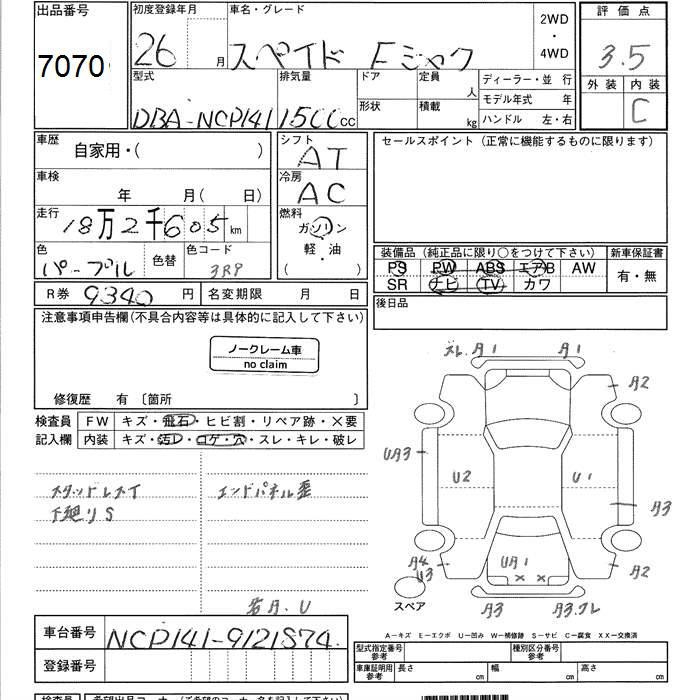 出品番号
7070
初度登録年月
26
車名・グレード
スペイド Fジャク
2WD
・
4WD
評価点
3.5
外装 内装
C
型式
DBA-NCP141
排気量
1500cc
ドア
形状
定員
人
積載
kg
ディーラー・並行
モデル年式 年
ハンドル 左・右
車歴
自家用・( )
車検
年 月( 日)
走行
18万2千605km
色
パープル
色替
色コード
3R9
シフト
AT
冷房
AC
燃料
ガソリン
軽・油
( )
セールスポイント (正常に機能するものに限ります)
装備品 (純正品に限り○をつけて下さい)
PS PW ABS エアB AW
SR ナビ TV カワ
新車保証書
有・無
R券 9340 円
名変期限 月 日
後日品
注意事項申告欄(不具合内容等は具体的に記入して下さい)
ノークレーム車
no claim
修復歴 有 〔箇所 〕
検査員
記入欄
FW キズ・飛石・ヒビ割・リペア跡・×要
内装 キズ・汚レ・コゲ・穴・スレ・キレ・破レ
下廻りS
エンドパネル歪
U
A1
A1
A2
UA3
U2
U1
A3
A4
U3
UA1
A2
スペア
A3
A3
A-キズ E-エクボ U-凹み W-補修跡 S-サビ C-腐食 XX-交換済
車台番号
NCP141-9121574
登録番号
型式指定番号
参考
種別区分番号
参考
車庫証明用
参考
長さ cm
幅 cm
高さ cm